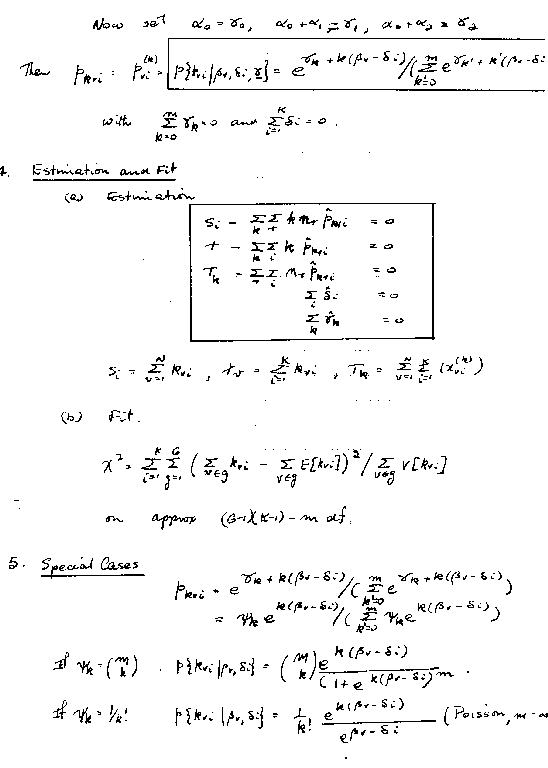 Now set α₀ = γ₀, α₀ + α₁ = γ₁, α₀ + α₂ = γ₂
Then pₖᵥᵢ = pᵥᵢ⁽ᵏ⁾ = p{kᵥᵢ|βᵥ, δᵢ, γ} = e^{γₖ + k(βᵥ − δᵢ)} / (Σ_{k'=0}^{m} e^{γₖ' + k'(βᵥ − δᵢ)}
with Σ_{k=0}^{m} γₖ = 0 and Σ_{i=1}^{K} δᵢ = 0.
4. Estimation and Fit
(a) Estimation
Sᵢ − Σₖ Σᵣ k nᵣ p̂ₖᵣᵢ = 0
r − Σₖ Σᵢ k p̂ₖᵣᵢ = 0
Tₖ − Σᵣ Σᵢ nᵣ p̂ₖᵣᵢ = 0
Σᵢ δ̂ᵢ = 0
Σₖ γ̂ₖ = 0
Sᵢ = Σ_{v=1}^{N} kᵥᵢ , rᵥ = Σ_{i=1}^{K} kᵥᵢ , Tₖ = Σ_{v=1}^{N} Σ_{i=1}^{K} (xᵥᵢ⁽ᵏ⁾)
(b) Fit.
χ² = Σ_{i=1}^{K} Σ_{g=1}^{G} (Σ_{v∈g} kᵥᵢ − Σ_{v∈g} E[kᵥᵢ])² / Σ_{v∈g} V[kᵥᵢ]
on approx (G-1)(K-1) - m df.
5. Special Cases
pₖᵥᵢ = e^{γₖ + k(βᵥ − δᵢ)} / (Σ_{k=0}^{m} e^{γₖ + k(βᵥ − δᵢ)})
= ψₖ e^{k(βᵥ − δᵢ)} / (Σ_{k=0}^{m} ψₖ e^{k(βᵥ − δᵢ)})
If ψₖ = (m k) . p{kᵥᵢ|βᵥ, δᵢ} = (m k) e^{k(βᵥ − δᵢ)} / (1 + e^{k(βᵥ − δᵢ)})^m .
If ψₖ = 1/k! p{kᵥᵢ|βᵥ, δᵢ} = 1/k! e^{k(βᵥ − δᵢ)} / e^{βᵥ − δᵢ} (Poisson, m →